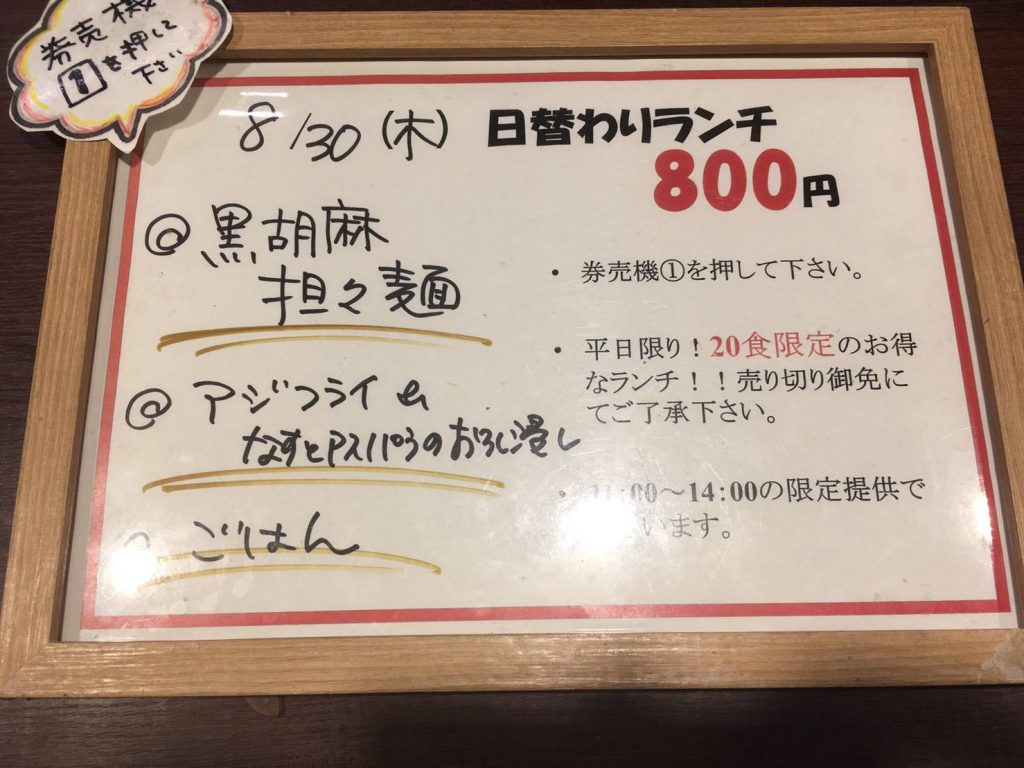 券売機
1を押して
下さい
8/30(木) 日替わりランチ
800円
@黒胡麻
担々麺
@アジフライ&
なすとアスパラのおろし浸し
ごはん
・券売機①を押して下さい。
・平日限り！20食限定のお得
なランチ！！売り切り御免に
てご了承下さい。
・11:00～14:00の限定提供で
います。